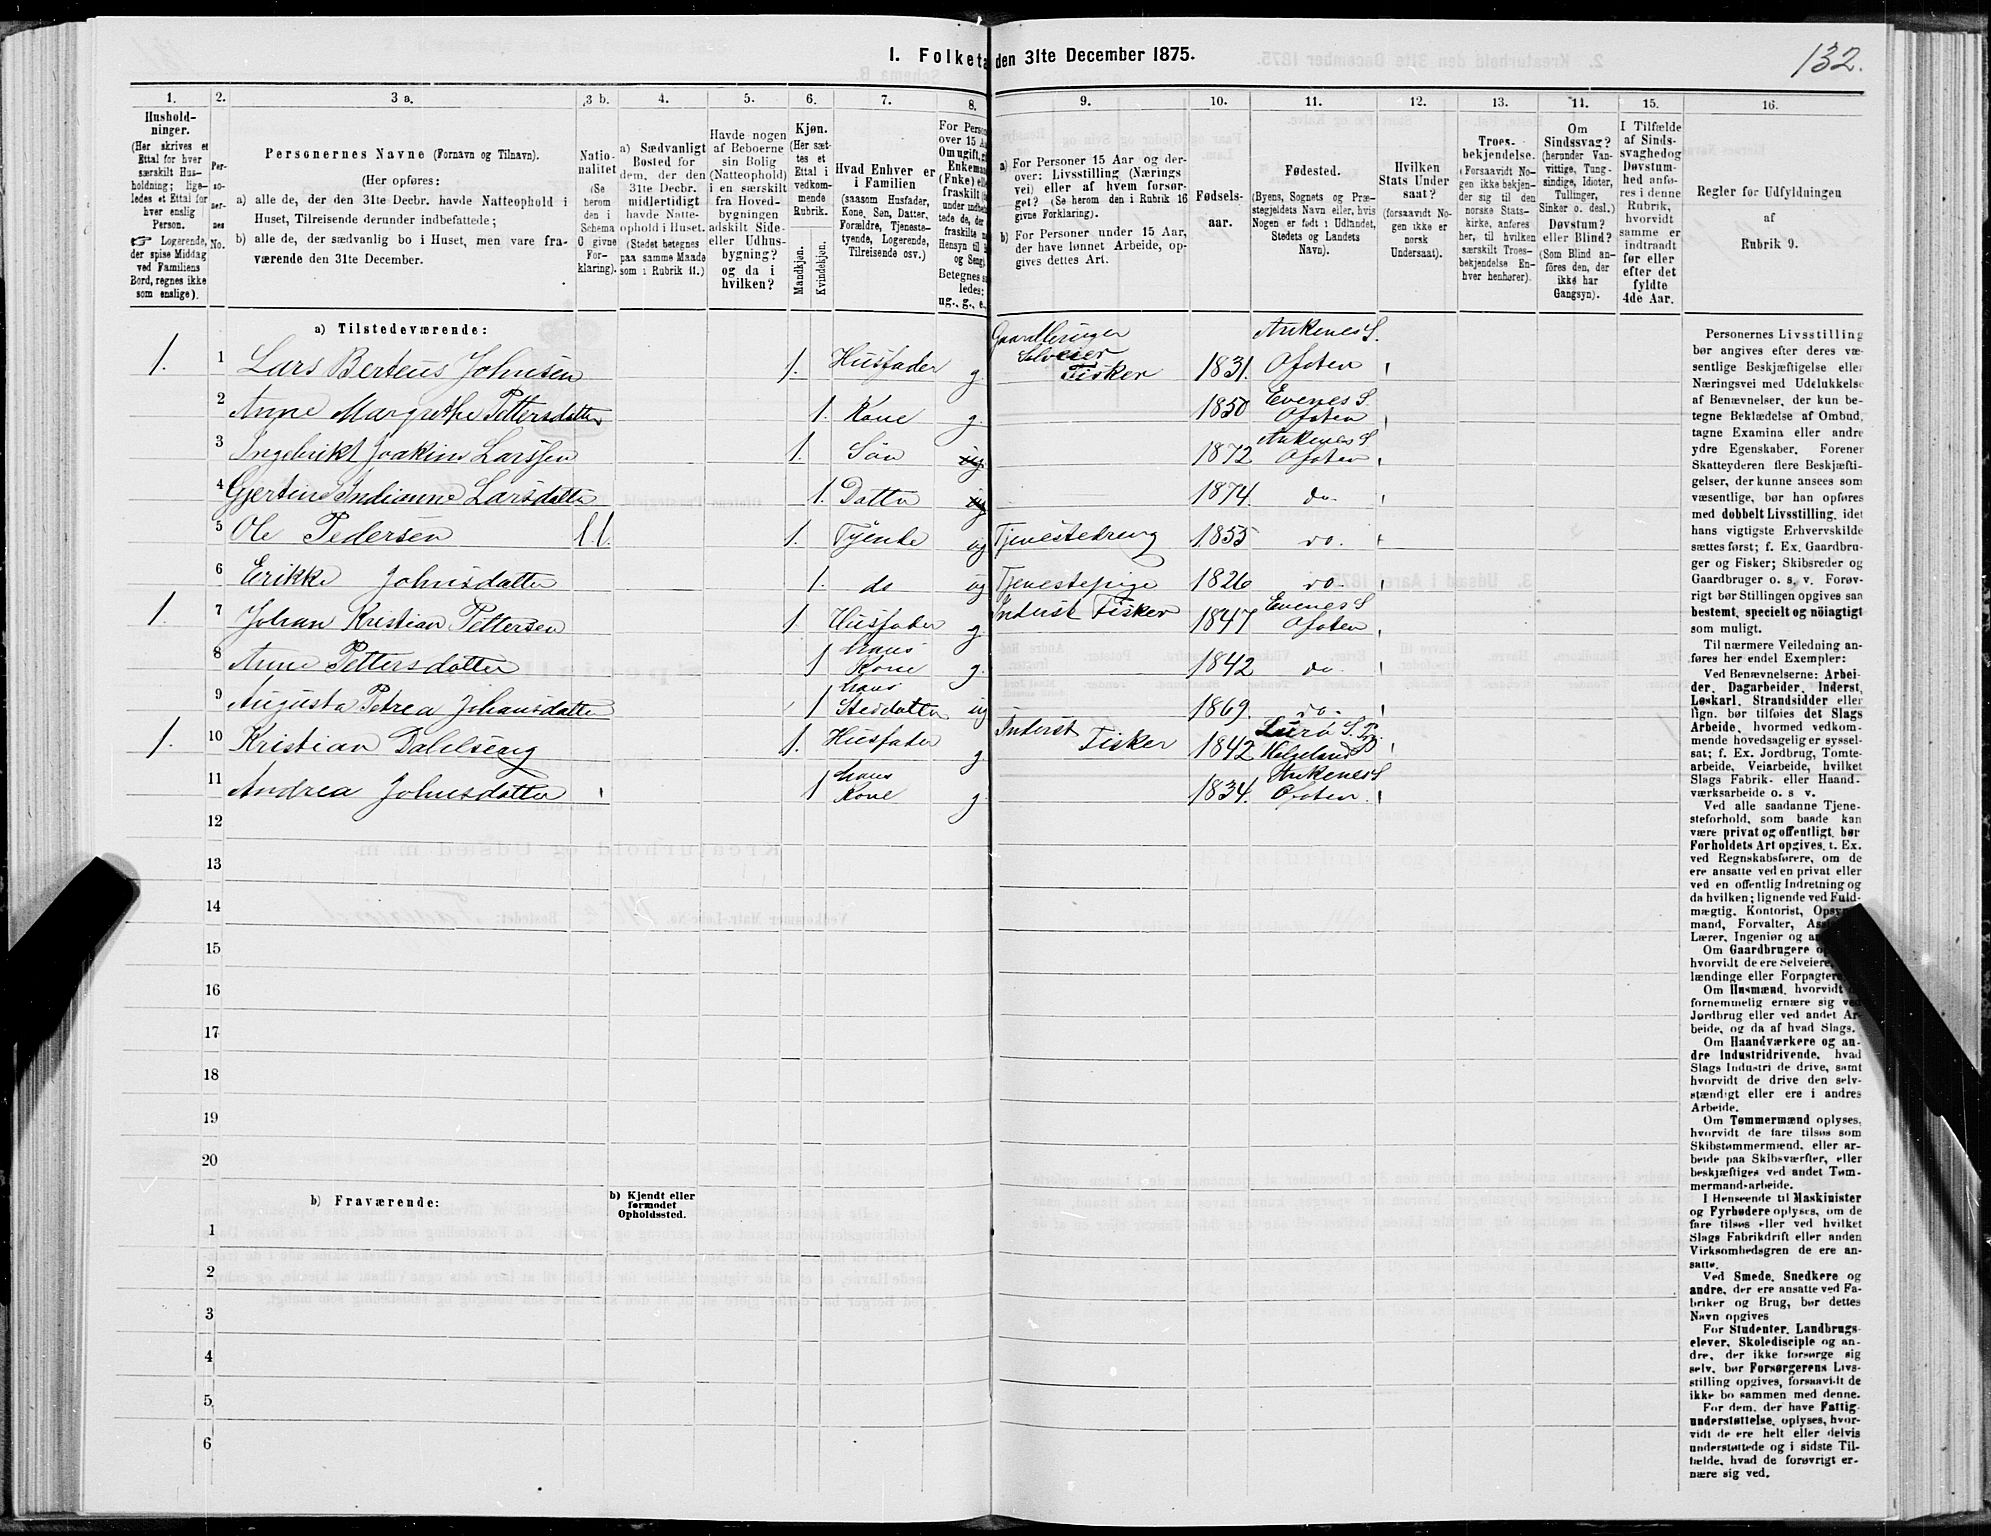 132.
1. Folketa den 31te December 1875.
1. 2. 3 a. 3 b. 4. 5. 6. 7. 8. 9. 10. 11. 12. 13. 14. 15. 16.
Hushold-
ninger.
(Her skrives et
Ettal for hver
særskilt Hus-
holdning; lige-
ledes et Ettal for
hver enslig
Person.
☞ Logerende,
der spise Middag
ved Familiens
Bord, regnes ikke
som enslige).
Per-
so-
ner-
nes
No.
Personernes Navne (Fornavn og Tilnavn).
(Her opføres:
a) alle de, der den 31te Decbr. havde Natteophold i
Huset, Tilreisende derunder indbefattede;
b) alle de, der sædvanlig bo i Huset, men vare fra-
værende den 31te December.
Natio-
nalitet
(Se
herom
den i
Schema
C givne
For-
klaring).
a) Sædvanligt
Bosted for
dem, der den
31te Decbr.
midlertidigt
havde Natte-
ophold i Huset.
(Stedet betegnes
paa samme Maade
som i Rubrik 11.)
Havde nogen
af Beboerne
sin Bolig
(Natteophold)
i en særskilt
fra Hoved-
bygningen
adskilt Side-
eller Udhus-
bygning?
og da i
hvilken?
Kjøn.
(Her sæt-
tes et
Ettal i
vedkom-
mende
Rubrik.
Mandkjøn.
Kvindekjøn.
Hvad Enhver er
i Familien
(saasom Husfader,
Kone, Søn, Datter,
Forældre, Tjeneste-
tyende, Logerende,
Tilreisende osv.)
For Person
over 15 Aa
Om ugift, g
Enkeman
(Fnke) elle
fraskilt
under indbefat
tede de, der
fraskilte
Hensyn til
og Seng).
Betegnes s
ledes:
ug., g., e.
a) For Personer 15 Aar og der-
over: Livsstilling (Nærings
vei) eller af hvem forsør-
get? (Se herom den i Rubrik 16
givne Forklaring).
b) For Personer under 15 Aar,
der have lønnet Arbeide, op-
gives dettes Art.
Fødsels-
aar.
Fødested.
(Byens, Sognets og Præ-
stegjeldets Navn eller, hvis
Nogen er født i Udlandet,
Stedets og Landets
Navn).
Hvilken
Stats Under
saat?
(forsaavidt No-
gen ikke er
norsk
Undersaat).
Troes-
bekjendelse.
(Forsaavidt No-
gen ikke bekjen-
der sig til den
norske Stats-
kirke, anføres
her, til hvilken
særskilt Troes-
bekjendelse En-
hver henhører).
Om
Sindssvag?
(herunder Van-
vittige, Tung-
sindige, Idioter,
Tullinger,
Sinker o. desl.)
Døvstum?
eller Blind?
(Som Blind an-
føres den, der
ikke har
Gangsyn).
I Tilfælde
af Sinds-
svaghed og
Døvstum-
hed anfø-
res i denne
Rubrik,
hvorvidt
samme er
indtraadt
før eller
efter det
fyldte
4de Aar.
Regler for Udfyldningen
af
Rubrik 9.
a) Tilstedeværende:
1. 1 Lars Berteus Johnsen 1. Husfader g. Gaardbruger Selveier Fisker 1831. Ankenes S. Ofoten
2 Anne Margrethe Pettersdatter 1. Kone g. 1850 Evenes S. Ofoten
3 Ingebrikt Joakim Larssen 1. Søn ug 1872 Ankenes S Ofoten
4 Gjertine Indianne Larsdatter 1. Datter ug 1874. do
5 Ole Pedersen l.l. 1. Tyende ug Tjenestedreng 1855 do.
6 Erikke Johnsdatter 1. do ug Tjenestepige 1826 do
1. 7 Johan Kristian Pettersen 1 Husfader g. Inderst Fisker 1847 Evenes S Ofoten
8 Anne Pettersdatter 1 hans Kone g. 1842 do
9 Augusta Petrea Johansdatter 1 hans Steddatter ug 1869. do.
1. 10 Kristian Dahlseng 1. Husfader g Inderst Fisker 1842 Lurø S. P. Helgeland
11 Andrea Johnsdatter 1 hans Kone g. 1834. Ankenes S Ofoten
12
13
14
15
16
17
18
19
20
b) Fraværende: b) Kjendt eller
formodet
Opholdssted.
1
2
3
4
5
6
Personernes Livsstilling
bør angives efter deres væ-
sentlige Beskjæftigelse eller
Næringsvei med Udelukkelse
af Benævnelser, der kun be-
tegne Beklædelse af Ombud,
tagne Examina eller andre
ydre Egenskaber. Forener
Skatteyderen flere Beskjæfti-
gelser, der kunne ansees som
væsentlige, bør han opføres
med dobbelt Livsstilling, idet
hans vigtigste Erhvervskilde
sættes først; f. Ex. Gaardbru-
ger og Fisker; Skibsreder og
Gaardbruger o. s. v. Forøv-
rigt bør Stillingen opgives saa
bestemt, specielt og nöiagtigt
som muligt.
Til nærmere Veiledning an-
føres her endel Exempler:
Ved Benævnelserne: Arbei-
der, Dagarbeider, Inderst,
Løskarl, Strandsidder eller
lign. bør tilføies det Slags
Arbeide, hvormed vedkom-
mende hovedsagelig er syssel-
sat; f. Ex. Jordbrug, Tomte-
arbeide, Veiarbeide, hvilket
Slags Fabrik- eller Haand-
værksarbeide o. s v.
Ved alle saadanne Tjene-
steforhold, som baade kan
være privat og offentligt, bør
Forholdets Art opgives, t. Ex.
ved Regnskabsførere, om de
ere ansatte ved en privat eller
ved en offentlig Indretning og
da hvilken; lignende ved Fuld-
mægtig, Kontorist, Opsy
mand, Forvalter, Ass
Lærer, Ingeniør og a
Om Gaardbrugere o
hvorvidt de ere Selveiere,
lændinge eller Forpagtere.
Om Husmænd, hvorvidt
fornemmelig ernære sig ved
Jordbrug eller ved andet Ar-
beide, og da af hvad Slags.
Om Haandværkere og an-
dre Industridrivende, hvad
Slags Industri de drive, samt
hvorvidt de drive den selv-
stændigt eller ere i andres
Arbeide.
Om Tømmermænd oplyses,
hvorvidt de fare tilsøs som
Skibstømmermænd, eller ar-
beide paa Skibsværfter, eller
beskjæftiges ved andet Tøm-
mermand-arbeide.
I Henseende til Maskinister
og Fyrbødere oplyses, om de
fare tilsøs eller ved hvilket
Slags Fabrikdrift eller anden
Virksomhedsgren de ere an-
satte.
Ved Smede, Snedkere og
andre, der ere ansatte ved Fa-
briker og Brug, bør dettes
Navn opgives
For Studenter, Landbrugs-
elever, Skoledisciple og an-
dre, der ikke forsørge sig
selv, bør Forsørgerens Livs-
stilling opgives, forsaavidt de
ikke bo sammen med denne.
For dem, der have Fattig-
understøttelse, oplyses, hvor-
vidt de ere helt eller delvis
understøttede og i sidste Til-
fælde, hvad de forøvrigt er-
nære sig ved.